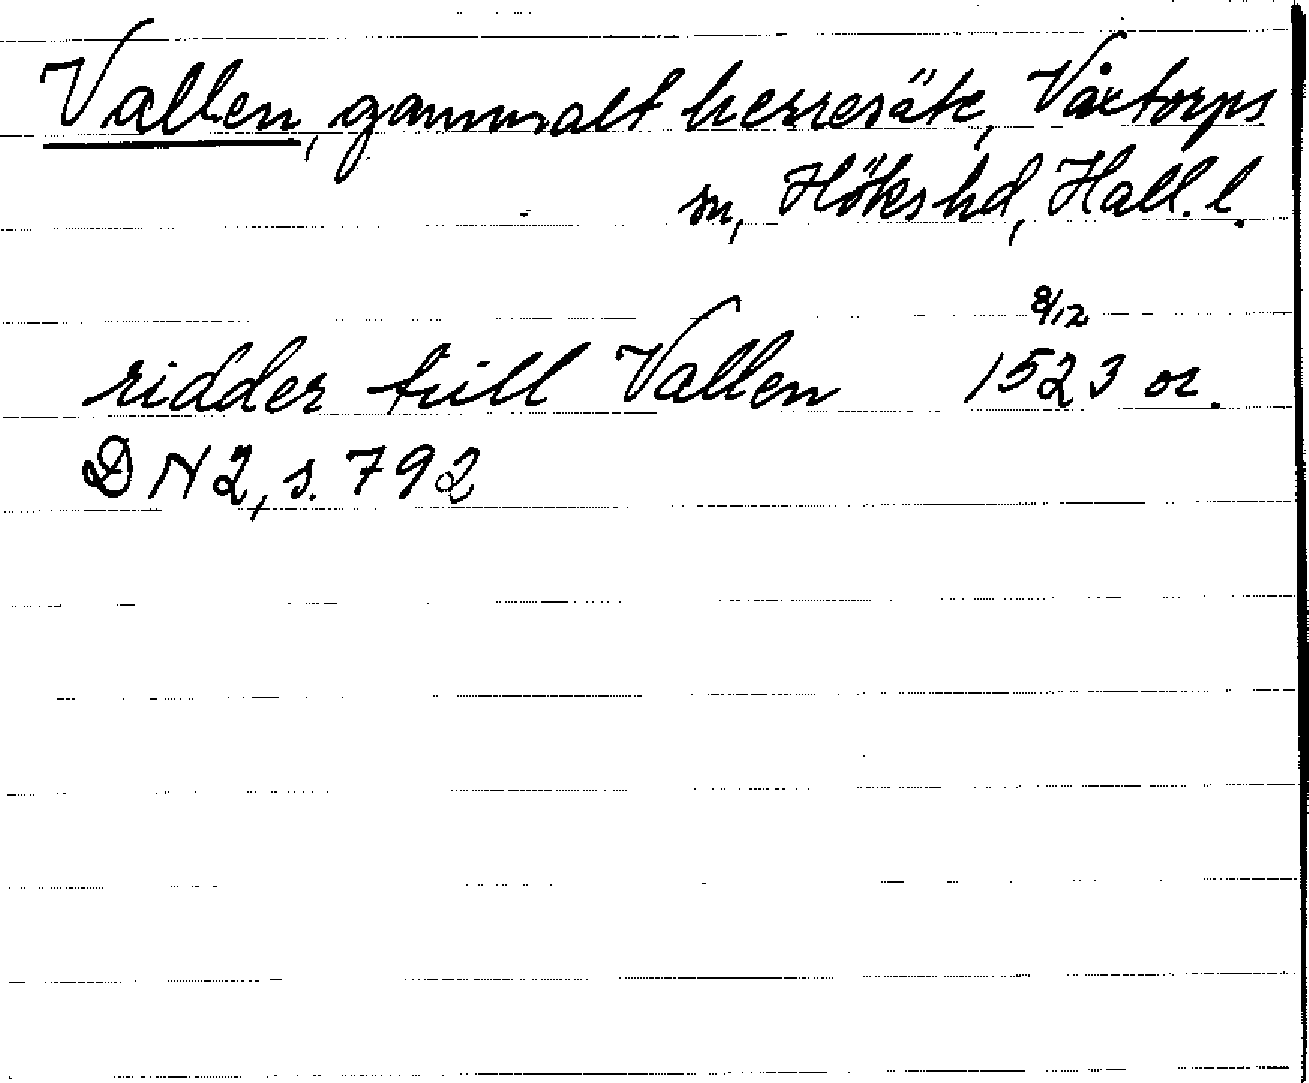 Vallen, gammalt herresäte, Våxtorps
sn, Höks hd, Hall. l.
8/12
ridder till Vallen 1523 or.
DN 2, s. 792